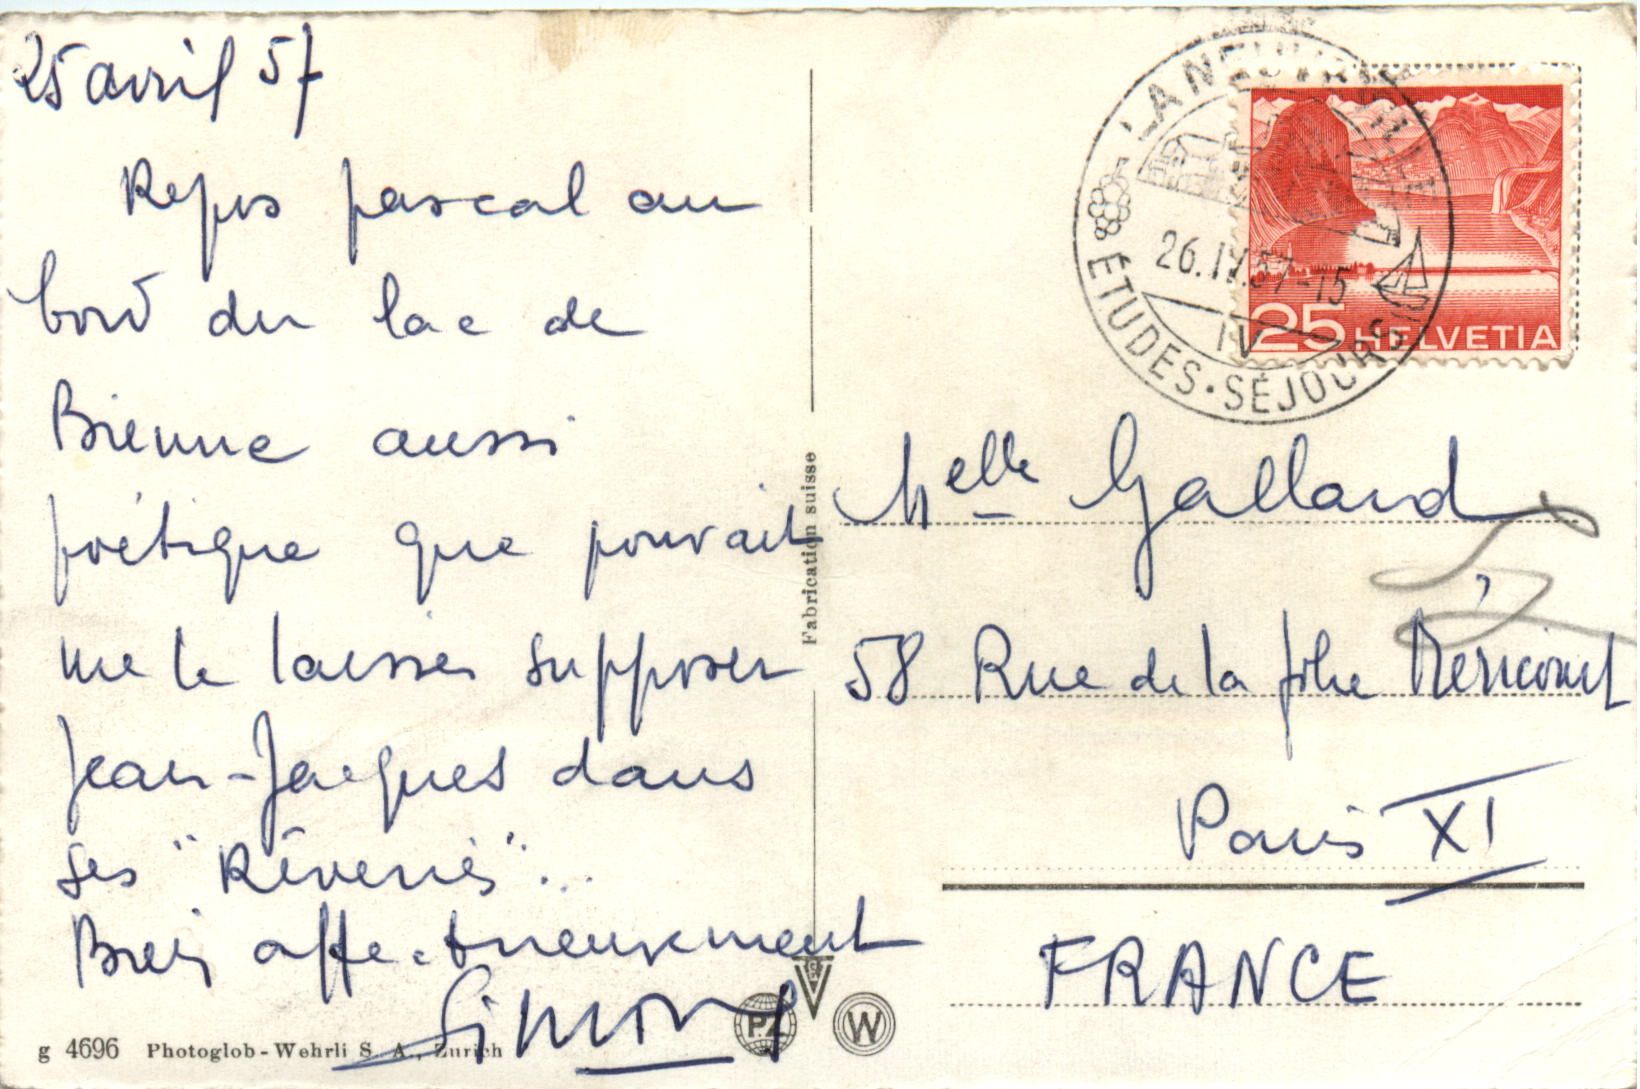 25 avril 57
Repos pascal au
bord du lac de
Bienne aussi
poétique que pouvait
me le laisser supposer
Jean-Jacques dans
ses "Rêveries"...
Bien affectueusement
Simone
g 4696 Photoglob-Wehrli S. A., Zurich
Fabrication suisse
PZ
W
LA NEUVEVILLE
26.IV.57-15
IV
ÉTUDES·SÉJOURS
25 HELVETIA
Melle Galland
58 Rue de la folie Méricourt
Paris XI
FRANCE